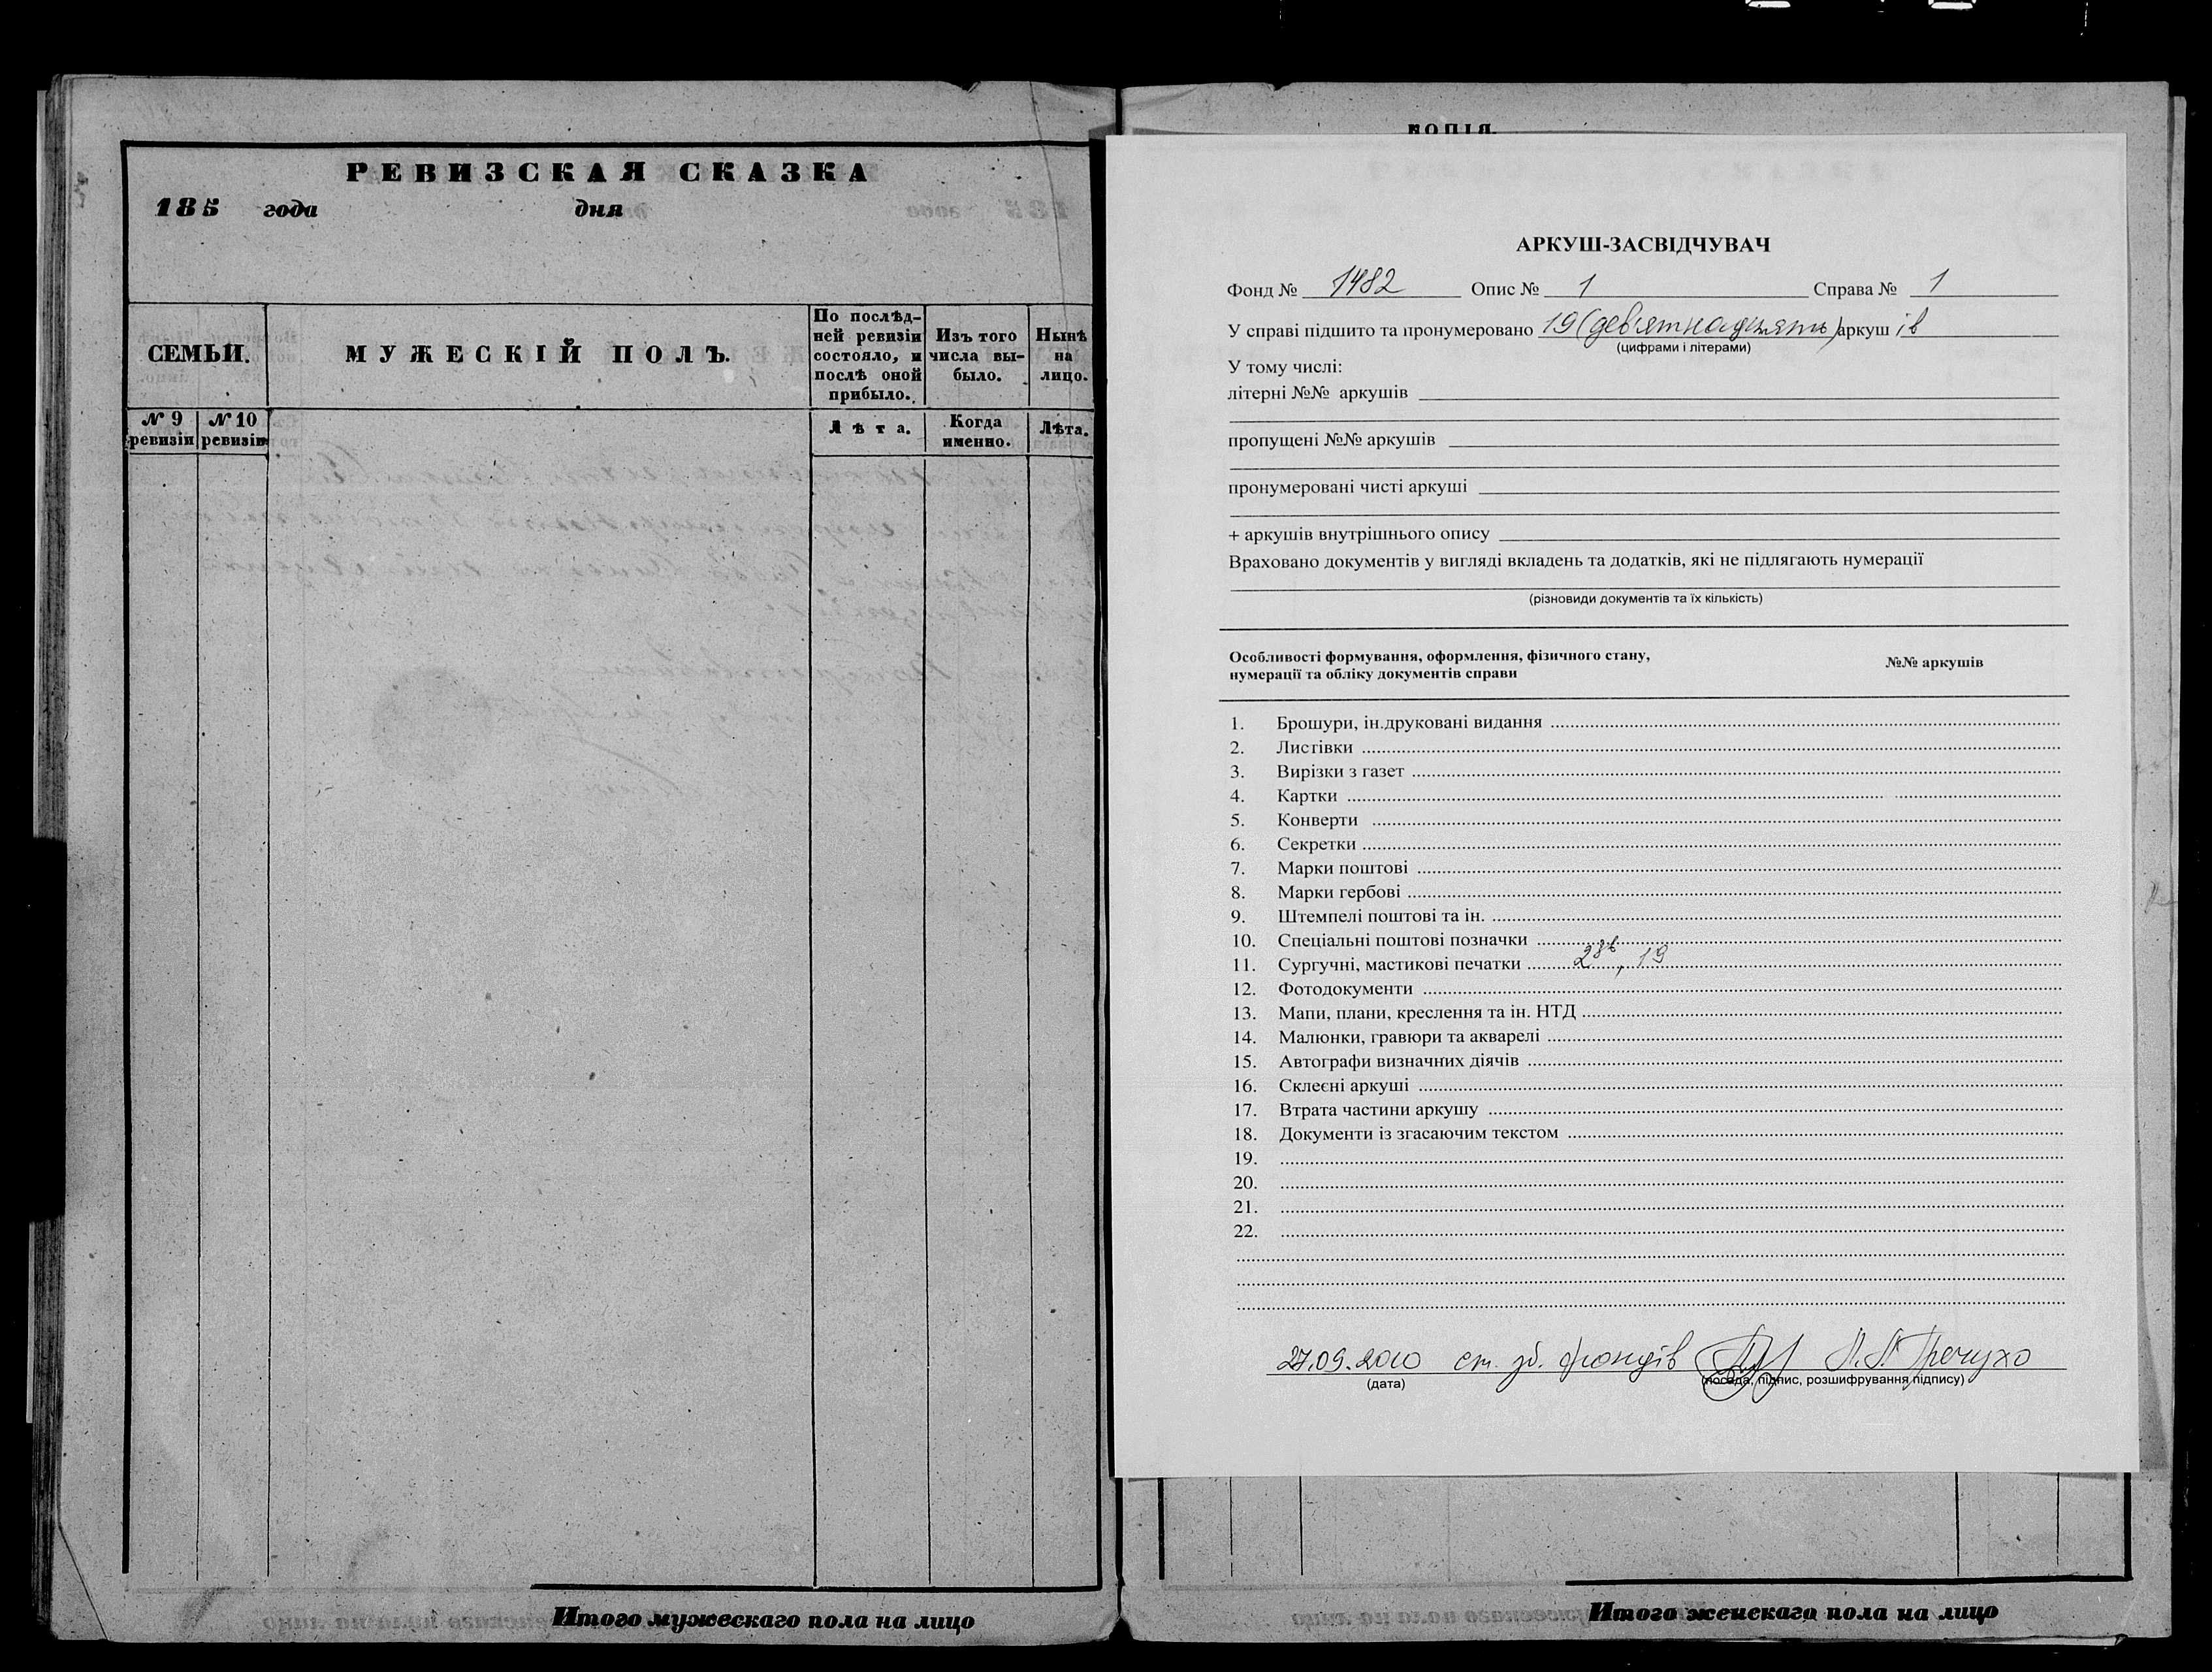 РЕВИЗСКАЯ СКАЗКА
185 года дня
СЕМЬИ.
МУЖЕСКІЙ ПОЛЪ.
По послѣд-
ней ревизіи
состояло, и
послѣ оной
прибыло.
Изъ того
числа вы-
было.
Нынѣ
на
лицо.
№ 9
ревизіи
№ 10
ревизіи
Лѣта.
Когда
именно.
Лѣта.
Итого мужескаго пола на лицо
КОПІЯ.
АРКУШ-ЗАСВІДЧУВАЧ
Фонд № 1482 Опис № 1 Справа № 1
У справі підшито та пронумеровано 19 (дев'ятнадцять) аркушів
(цифрами і літерами)
У тому числі:
літерні №№ аркушів
пропущені №№ аркушів
пронумеровані чисті аркуші
+ аркушів внутрішнього опису
Враховано документів у вигляді вкладень та додатків, які не підлягають нумерації
(різновиди документів та їх кількість)
Особливості формування, оформлення, фізичного стану,
нумерації та обліку документів справи
№№ аркушів
1. Брошури, ін.друковані видання
2. Листівки
3. Вирізки з газет
4. Картки
5. Конверти
6. Секретки
7. Марки поштові
8. Марки гербові
9. Штемпелі поштові та ін.
10. Спеціальні поштові позначки
11. Сургучні, мастикові печатки 19
12. Фотодокументи
13. Мапи, плани, креслення та ін. НТД
14. Малюнки, гравюри та акварелі
15. Автографи визначних діячів
16. Склеєні аркуші
17. Втрата частини аркушу
18. Документи із згасаючим текстом
19.
20.
21.
22.
27.09.2010 ст. зб. фондів
(дата) (посада, підпис, розшифрування підпису)
Итого женскаго пола на лицо